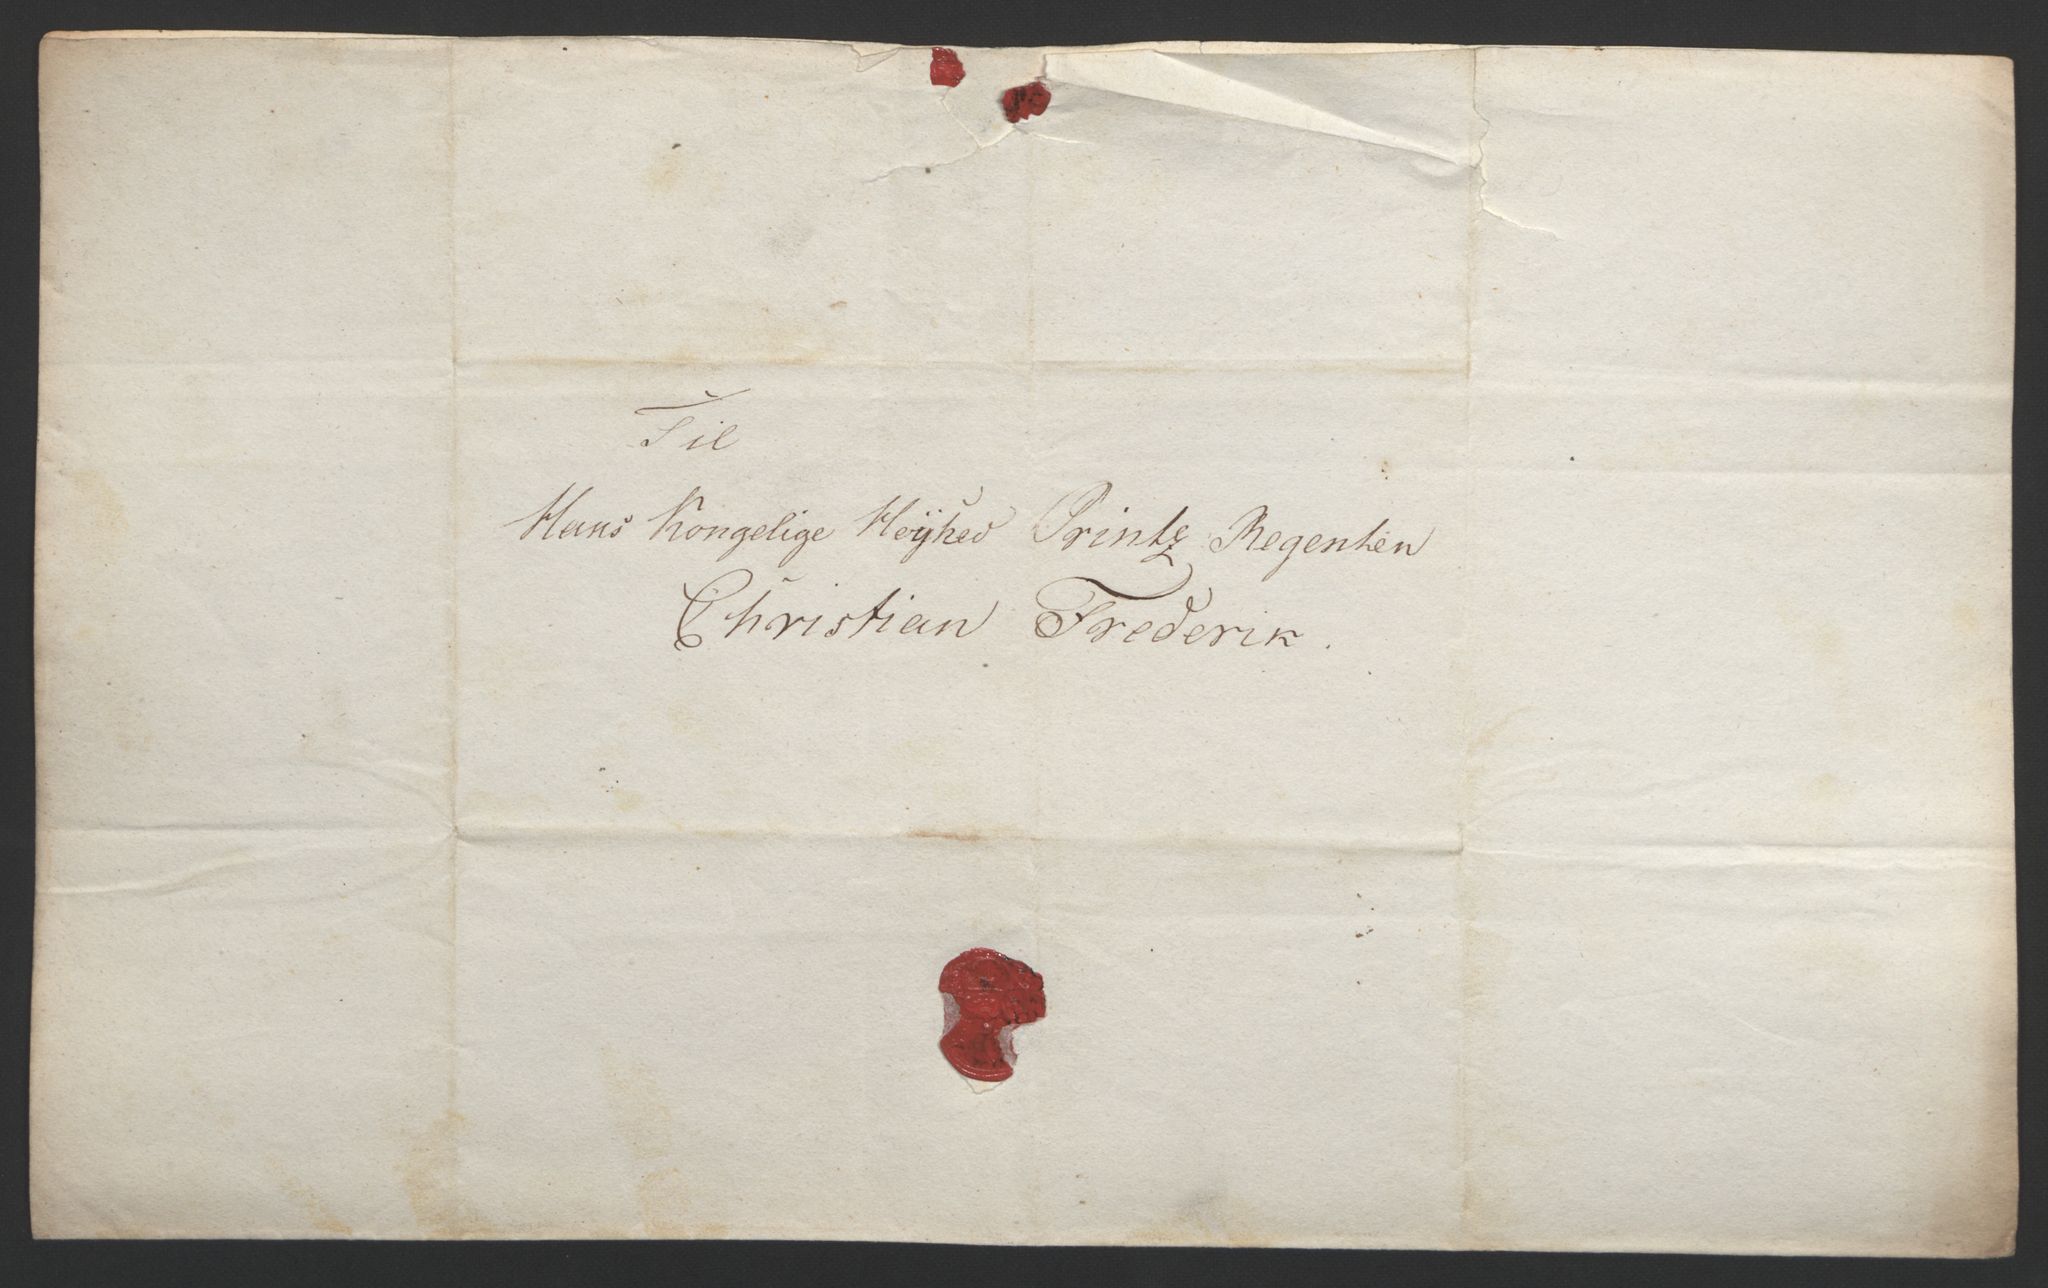 Til
Hans Kongelige Höÿhed Printz Regenten
Christian Frederik.